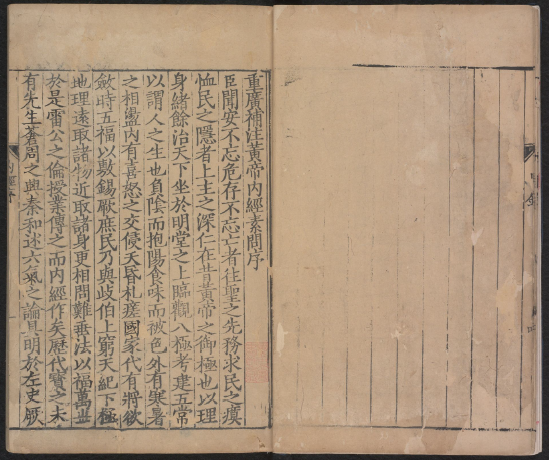 重廣補注黃帝內經素問序
臣聞安不忘危存不忘亡者往聖之先務求民之瘼
恤民之隱者上主之深仁在昔黃帝之御極也以理
身緒餘治天下坐於明堂之上臨觀八極考建五常
以謂人之生也負陰而抱陽食味而被色外有寒暑
之相盪內有喜怒之交侵天昏札瘥國家代有將欲
斂時五福以敷錫厥庶民乃與歧伯上窮天紀下極
地理遠取諸物近取諸身更相問難垂法以福萬世
於是雷公之倫授業傳之而內經作矣歷代寶之未
有失墜蒼周之興秦和述六氣之論具明於左史厥